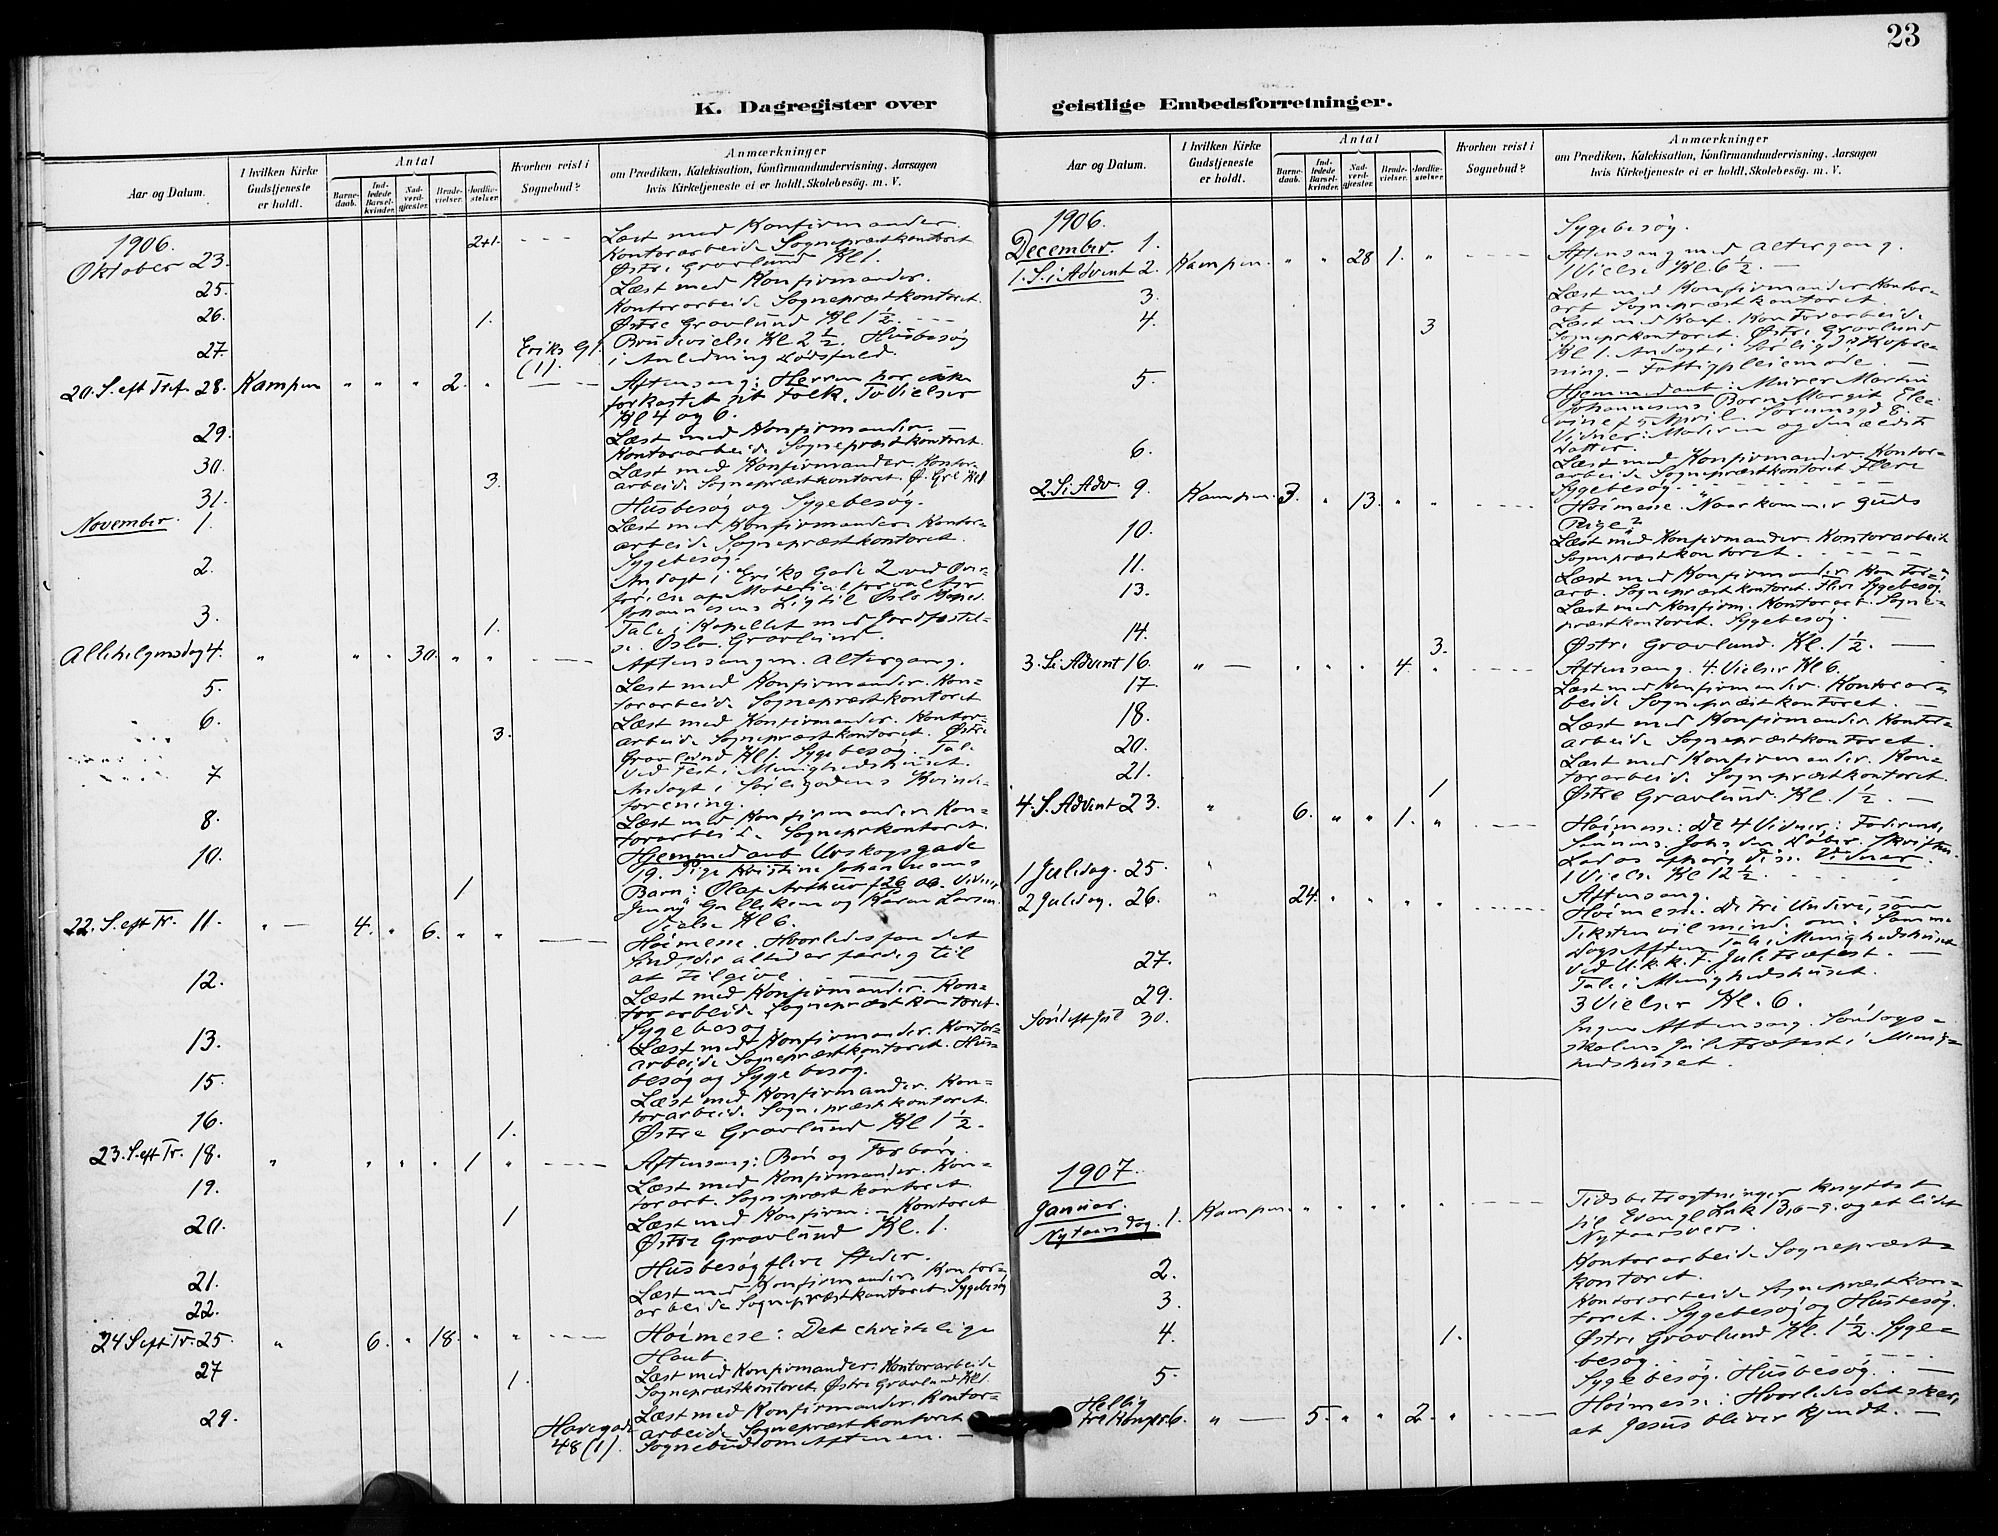 23
K. Dagregister over geistlige Embedsforretninger.
Aar og Datum.
I hvilken Kirke Gudstjeneste er holdt.
Antal
Barnedaab.
Indledede Barselkvinder.
Nadverdgjæster.
Brudevielser.
Jordfæstelser.
Hvorhen reist i Sognebud?
Anmærkninger
om Prædiken, Katekisation, Konfirmandundervisning. Aarsagen
hvis Kirketjeneste ei er holdt. Skolebesøg. m. V.
1906.
Oktober 23. 2+1.
Læst med Konfirmander.
Kontorarbeide Sognepræstkontoret
Østre Gravlund Kl 1.
25.
Læst med Konfirmander.
Kontorarbeide Sognepræstkontoret.
26. 1.
Østre Gravlund Kl 1 1/2.
27. Eriks G 1. (1).
Brudevielse Kl 2 1/2. Husbesøg
i Anledning Dødsfald.
20. S. eft Tref. 28. Kampen " " " 2. "
Aftensang: Herren har ikke
forkastet sit Folk. To Vielser
Kl 4 og 6.
29.
Læst med Konfirmander.
Kontorarbeide Sognepræstkontoret.
30. 3.
Læst med Konfirmander. Kontor-
arbeide Sognepræstkontoret. Ø. Grl Kl 1
31.
Husbesøg og Sygebesøg.
November. 1.
Læst med Konfirmander Kontor-
arbeide Sognepræstkontoret.
Sygebesøg.
2.
Andagt i Eriks Gade 2 ved Over-
førelse af Materialforvalter
Johannesens Lig til Oslo Kapel.
3. 1.
Tale i Kapellet med Jordfæstel-
se. Oslo Gravlund.
Allehelgensdag 4. " " " 30. " "
Aftensang m. Altergang.
5.
Læst med Konfirmander. Kon-
torarbeide Sognepræstkontoret
6. 3.
Læst med Konfirmander. Kontor-
arbeide Sognepræstkontoret. Østre
Gravlund Kl 1. Sygebesøg. Tale
ved Fest i Menighedshuset.
7
Andagt i Sørligadens Kvinde-
forening.
8.
Læst med Konfirmander Kon-
torarbeide Sogneprkontoret.
10. 1
Hjemmedaab Urskogsgade
19. Pige Kristine Johannesens
Barn: Olaf Arthur f 26 Vidner
Jenny og Karen Larsen.
Vielse Kl 6.
22. S. eft Tr. 11. " 4. " 6. " "
Høimesse. Hvorledes faa det
Sind, der altid er færdig til
at tilgive.
12.
Læst med Konfirmander. Kon-
torarbeide Sognepræstkontoret.
Sygebesøg
13.
Læst med Konfirmander. Kontor-
arbeide Sognepræstkontoret. Hus-
besøg og Sygebesøg.
15.
Læst med Konfirmander. Kon-
torarbeide Sognepræstkontoret.
16. 1.
Østre Gravlund Kl 1 1/2.
23. S. eft Tr. 18. " " " " 1 "
Aftensang: Bøn og Forbøn.
19.
Læst med Konfirmander. Kon-
torarb. Sognepræstkontoret.
20. 1
Læst med Konfirm. - Kontoret
Østre Gravlund Kl. 1.
21.
Husbesøg flere Steder.
22.
Læst med Konfirmander Kontor-
arbeide Sognepræstkontoret. Sygebesøg
24 S eft Tr. 25. " 6. " 18. " "
Høimesse: Det christelige
Haab.
27 1.
Læst med Konfirmander. Kontorarbeide
Sognepræstkontoret Østre Gravlund Kl 1.
29. Havegade 48 (1).
Læst med Konfirmander. Kontor-
arbeide Sognepræstkontoret
Sognebud om Aftenen. -
Aar og Datum.
I hvilken Kirke Gudstjeneste er holdt.
Antal
Barnedaab.
Indledede Barselkvinder.
Nadverdgjæster.
Brudevielser.
Jordfæstelser.
Hvorhen reist i Sognebud?
Anmærkninger
om Prædiken, Katekisation, Konfirmandundervisning. Aarsagen
hvis Kirketjeneste ei er holdt. Skolebesøg. m. V.
1906.
December. 1.
Sygebesøg.
1. S. i Advent 2. Kampen. " " 28 1. "
Aftensang med Altergang.
1 Vielse Kl. 6 1/2. -
3.
Læst med Konfirmander Kontor-
arb Sognepræstkontoret.
4. 3
Læst med Konf. Kontorarbeide
Sogneprkontoret. Østre Gravlund
Kl 1. Andagt i
- Fattigpleiemøde. -
5.
Hjemmedaab: Murer Martin
Johannesens Barn Margit Ele-
vine f 5 April. Sørumsgd 8.
Vidner: Moderen og den ældste
Datter.
6.
Læst med Konfirmander. Kontor-
arbeide Sognepræstkontoret Flere
Sygebesøg.
2. S. i Adv. 9. Kampen. 3. " 13. " "
Høimesse. Naar kommer Guds
Rige?
10.
Læst med Konfirmander Kontorarbeide
Sognepræstkontoret.
11.
Læst med Konfirmander Kontor-
arb. Sognepræstkontoret. Flere Sygebesøg.
13.
Læst med Konfirm. Kontorarb. Sogne-
præstkontoret. Sygebesøg. -
14. 3.
Østre Gravlund Kl. 1 1/2. -
3. S. i Advent 16. " - " " " 4. "
Aftensang. 4. Vielser Kl 6.
17.
Læst med Konfirmander. Kontorar-
beide Sognepræstkontoret. -
18.
Læst med Konfirmander Kontor-
arbeide Sognepræstkontoret.
20.
Læst med Konfirmander. Kon-
torarbeide Sognepræstkontoret.
21. 1
Østre Gravlund. Kl. 1 1/2. -
4. S. Advent 23. " 6. " " 1. "
Høimesse: De 4 Vidner: Faderen,
Sønnen, Johs den Døber, Skriften.
Lad os afhøre disse Vidner.
1 Vielse Kl 12 1/2.
1 Juledag. 25. "
Aftensang.
2 Juledag. 26. " 24. " " " "
Høimesse. De tre Undere, som
Teksten vil minde om. Samme
Dags Aften Tale i Menighedshuset
ved U.k.k.F. Juletræfest. -
27.
Tale i Menighedshuset.
29.
3 Vielser Kl. 6.
Sønd eft Jul 30.
Ingen Aftensang. Søndags-
skolens Juletræfest i Menig-
hedshuset.
1907.
Januar.
Nytaarsdag. 1. Kampen. " " " " "
Tidsbetragtninger knyttet
til Evangl Luk 13, 6-9. og et lidet
Nytaarsvers.
2.
Kontorarbeide Sognepræst-
kontoret.
3.
Kontorarbeide Sognepræstkon-
toret. Sygebesøg og Husbesøg.
4. 1.
Østre Gravlund Kl. 1 1/2. Syge-
besøg.
5.
Sygebesøg. Husbesøg. -
Hellig
tre Konger 6. " - 5. " " 2. "
Høimesse: Hvorledes det sker,
at Jesus bliver kjendt. -